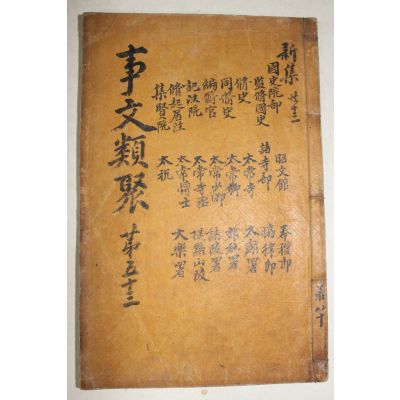 新集
國史院部
監脩國史
脩史
同脩史
編脩官
記注院
脩起居注
集賢院
昭文館
諸寺部
太常寺
太常卿
太常少卿
太常寺丞
太常博士
太祝
奉禮郎
協律郎
太廟署
郊社署
諸陵署
提點山陵
大樂署
事文類聚 第五十三
八十